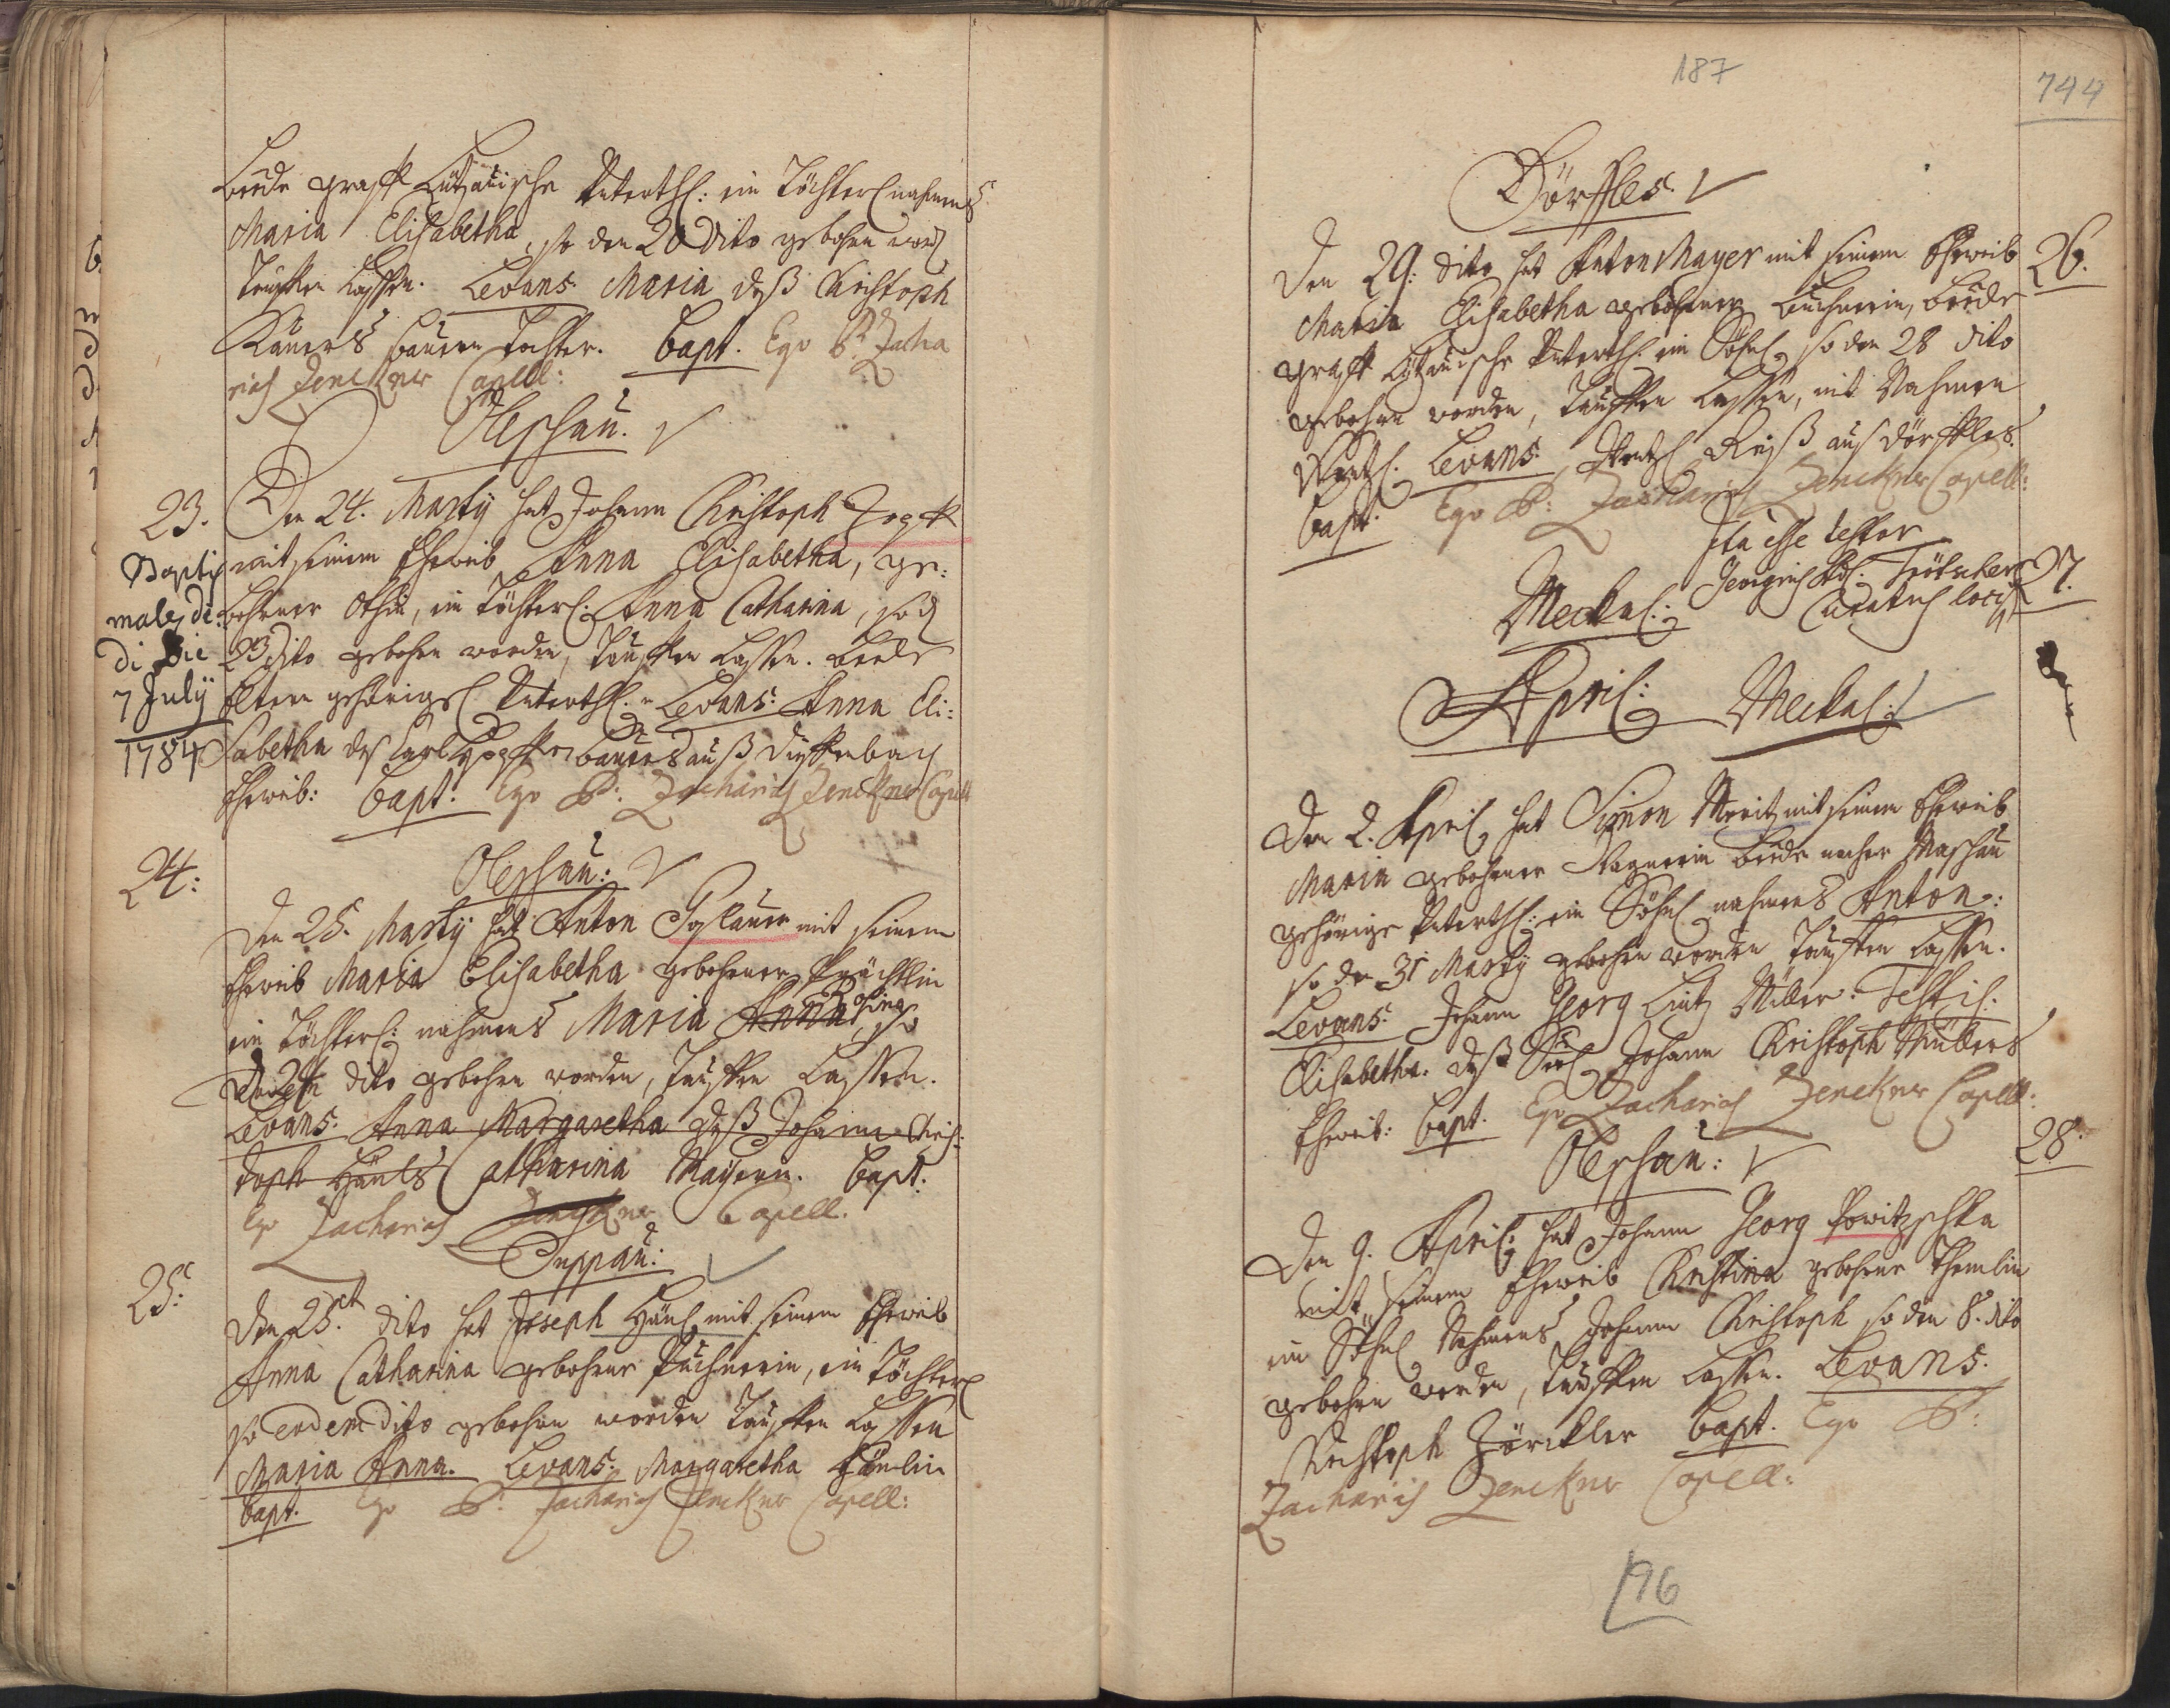 beede graffl Lützauische Unterthl: ein Töchterl nahmens
Maria Elisabetha, so den 20 dito gebohrn word
Tauffen lassen. Levans. Maria deß Christoph
Bauers Tochter. bapt. Ego P. Zacha
rias Zenckner Capell:
Oleschau.
23. Den 24. Marty hat Johann Christoph Zopff
mit seinem Eheweib Anna Elisabetha, ge:
bohrner, ein Töchterl: Anna Catharina, so d
23 dito gebohrn worden, Tauffen lassen. beede
Eltern gehörige Unterthl. Levans: Anna Eli:
sabetha des Carl bauers auß
Eheweib: bapt. Ego P: Zacharias Zenckner Capell
Baptis
males de:
di die
7 July
1784
24: Oleschau:
Den 25. Marty hat Anton Goslauer mit seinem
Eheweib Maria Elisabetha gebohrner
ein Töchterl: nahmens Maria Anna Rosina, so
dito gebohrn worden, Tauffen Lassen.
Levans: Anna Margaretha deß Johann Chris:
toph Häuls Catharina Mayern. bapt:
Ego Zacharias Zenckner Capell.
Duppau:
25: Den 25.t dito hat Joseph Häusl mit seinem Eheweib
Anna Catharina gebohrne Puchnerin, ein Töchterl
so eodem dito gebohrn worden Tauffen Lassen
Maria Anna. Levans: Margaretha
bapt. Ego P: Zacharias Zenckner Capell:
187
744
Dörffles.
Den 29: dito hat Anton Mayer mit seinem Eheweib 26.
Maria Elisabetha gebohrner Puchnerin, beede
graffl Lützauische Unterthl. ein Söhnl, so den 28 dito
gebohrn worden, Tauffen Lassen, mit Nahmen
Wentzl. Levans: Wentzl auß Dörffles.
bapt. Ego P: Zacharias Zenckner Capell:
Ita esse testor
Georgius Ad: 27.
Curatus loci
Meckl:
April: Meckl:
Den 2. April hat Simon Moritz mit seinem Eheweib
Maria gebohrner Wagnerin beede nacher Maschau
gehörige Unterthl: ein Söhnl nahmens Anton:
so den 31 Marty gebohrn worden Tauffen Lassen.
Levans: Johann Georg Lintz Müller: Testis.
Elisabetha. deß Johann Christoph Müllers
Eheweib: bapt. Ego Zacharias Zenckner Capell:
Oleschau: 28.
Den 9. April: hat Johann Georg Powitzschka
mit seinem Eheweib Christina gebohrne
ein Söhnl Nahmens Johann Christoph so den 8. dito
gebohrn worden, Tauffen Lassen. Levans.
Christoph Zörckler bapt. Ego P:
Zacharias Zenckner Capell:
196